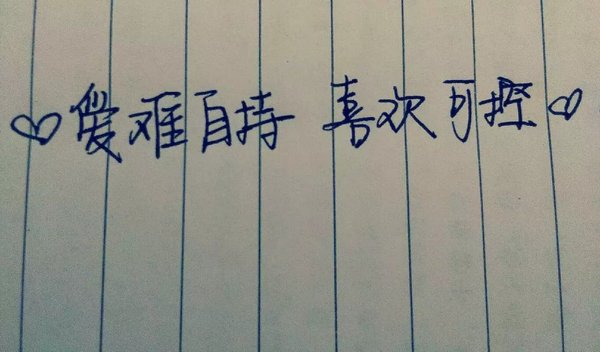 ♡爱难自持 喜欢可控♡